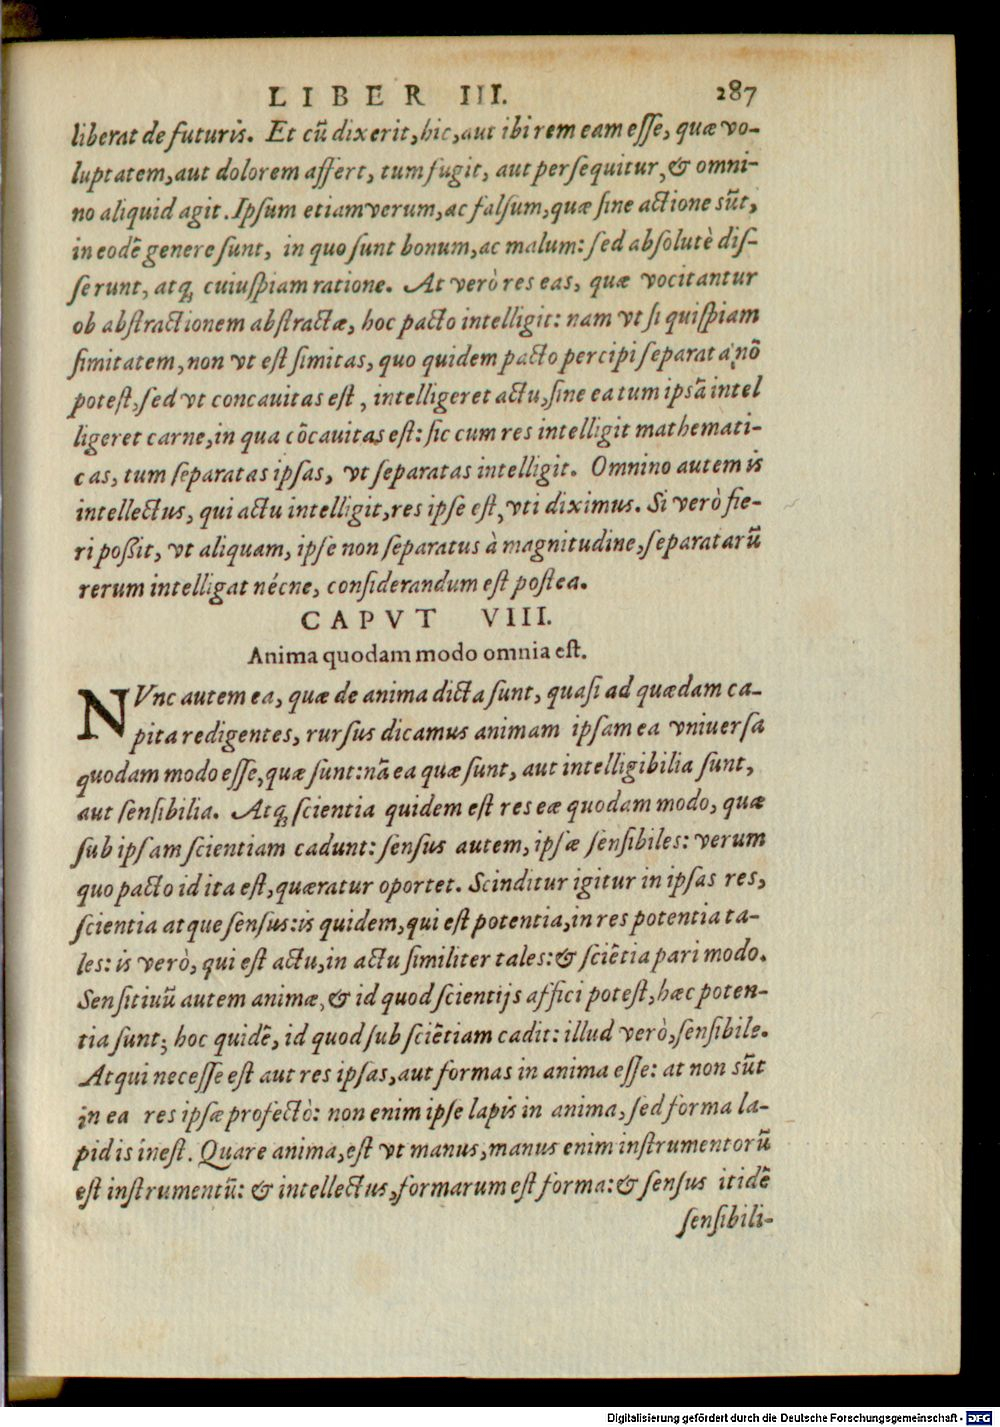 LIBER III. 287
liberat de futuris. Et cũ dixerit, hic, aut ibi rem eam eſſe, quæ vo-
luptatem, aut dolorem affert, tum fugit, aut perſequitur, & omni-
no aliquid agit. Ipſum etiam verum, ac falſum, quæ ſine actione sũt,
in eodẽ genere ſunt, in quo ſunt bonum, ac malum: ſed abſolutè diſ-
ſerunt, atq; cuiuſpiam ratione. At verò res eas, quæ vocitantur
ob abſtractionem abſtractæ, hoc pacto intelligit: nam vt ſi quiſpiam
ſimitatem, non vt eſt ſimitas, quo quidem pacto percipi ſeparata nõ
poteſt, ſed vt concauitas eſt, intelligeret actu, ſine ea tum ipſã intel
ligeret carne, in qua cõcauitas eſt: ſic cum res intelligit mathemati-
cas, tum ſeparatas ipſas, vt ſeparatas intelligit. Omnino autem is
intellectus, qui actu intelligit, res ipſe eſt, vti diximus. Si verò fie-
ri poßit, vt aliquam, ipſe non ſeparatus à magnitudine, ſeparatarũ
rerum intelligat nécne, conſiderandum eſt poſtea.
CAPVT VIII.
Anima quodam modo omnia eſt.
NVnc autem ea, quæ de anima dicta ſunt, quaſi ad quædam ca-
pita redigentes, rurſus dicamus animam ipſam ea vniuerſa
quodam modo eſſe, quæ ſunt: nã ea quæ ſunt, aut intelligibilia ſunt,
aut ſenſibilia. Atq; ſcientia quidem eſt res eæ quodam modo, quæ
ſub ipſam ſcientiam cadunt: ſenſus autem, ipſæ ſenſibiles: verum
quo pacto id ita eſt, quæratur oportet. Scinditur igitur in ipſas res,
ſcientia atque ſenſus: is quidem, qui eſt potentia, in res potentia ta-
les: is verò, qui eſt actu, in actu ſimiliter tales: & ſciẽtia pari modo.
Senſitiuũ autem animæ, & id quod ſcientijs affici poteſt, hæc poten-
tia ſunt; hoc quidẽ, id quod ſub ſciẽtiam cadit: illud verò, ſenſibile.
Atqui neceſſe eſt aut res ipſas, aut formas in anima eſſe: at non sũt
in ea res ipſæ profectò: non enim ipſe lapis in anima, ſed forma la-
pidis ineſt. Quare anima, eſt vt manus, manus enim inſtrumentorũ
eſt inſtrumentũ: & intellectus, formarum eſt forma: & ſenſus itidẽ
ſenſibili-
Digitalisierung gefördert durch die Deutsche Forschungsgemeinschaft - DFG